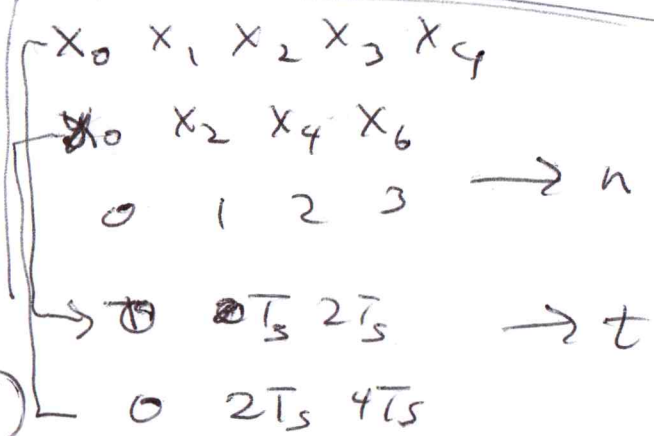 X₀ X₁ X₂ X₃ X₄
X₀ X₂ X₄ X₆
0 1 2 3 → n
→ 0 Tₛ 2Tₛ → t
0 2Tₛ 4Tₛ